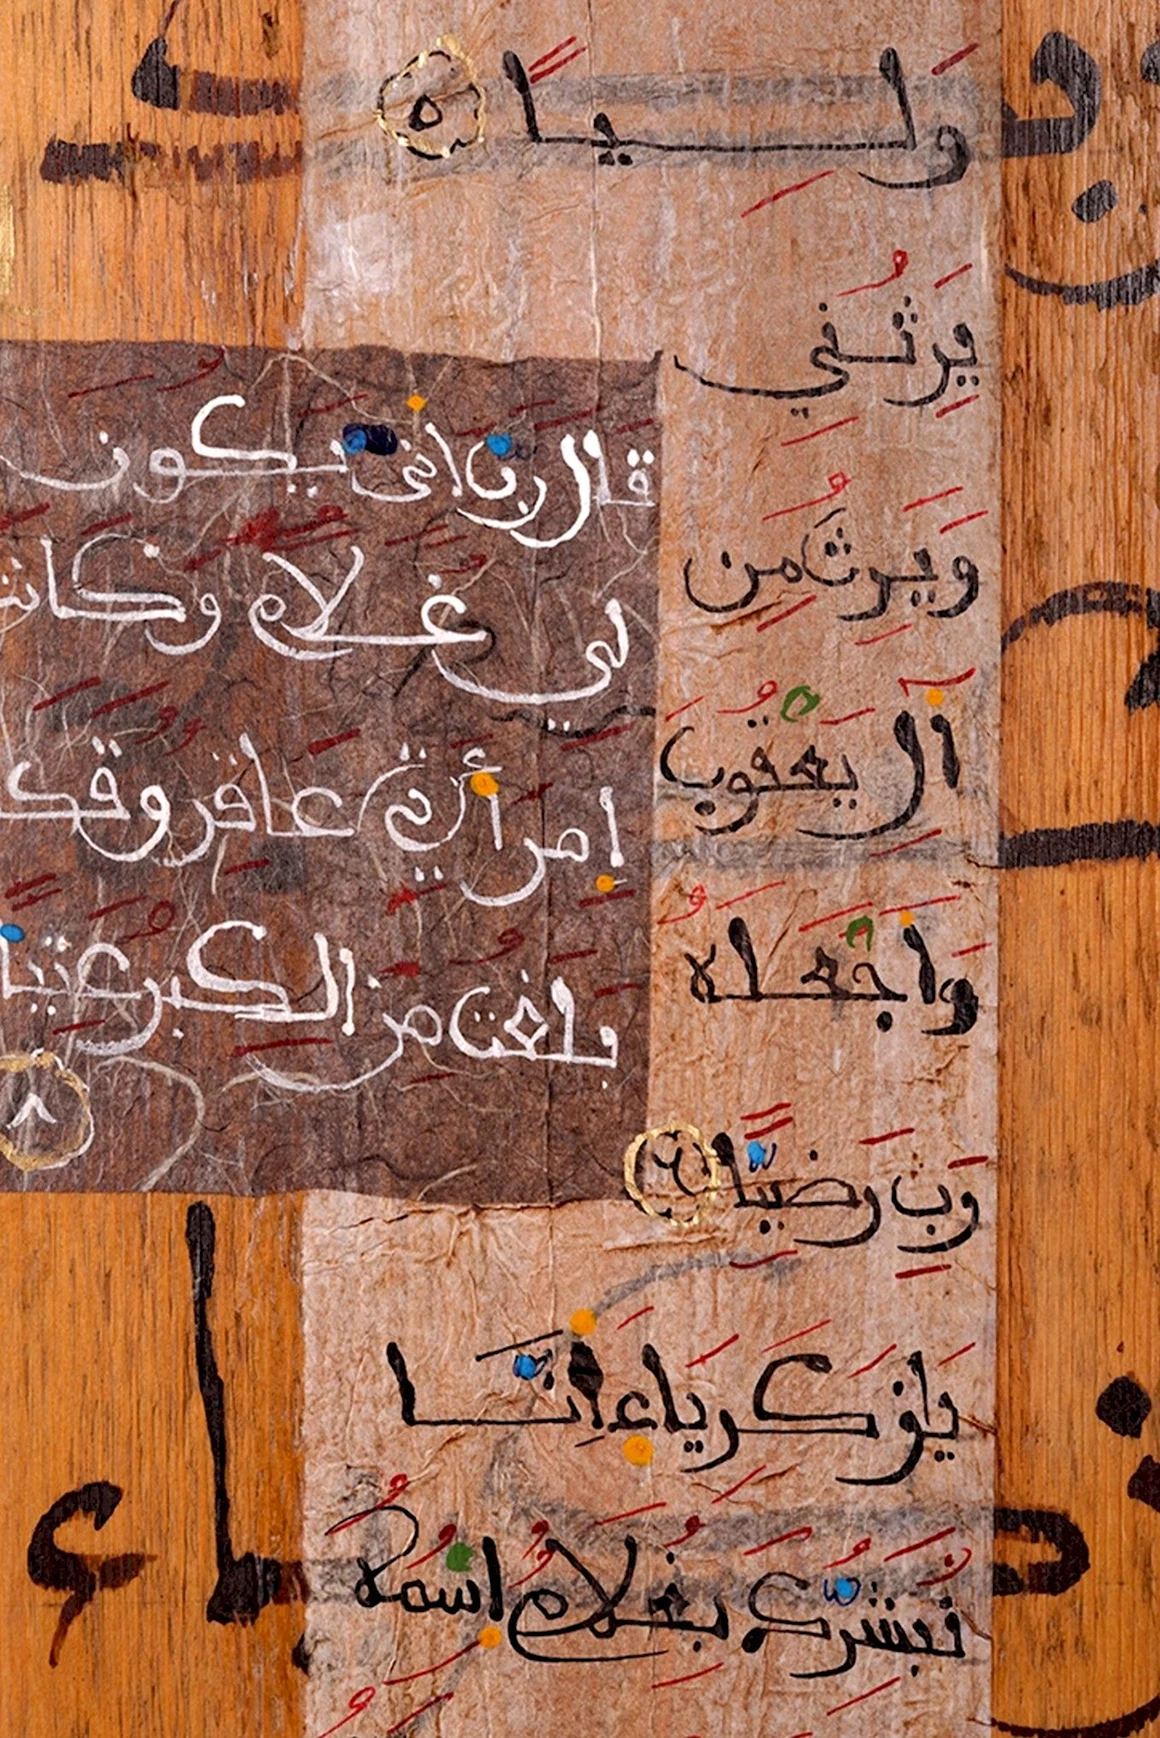 وَلِيًّا ٥
يَرِثُنِي
وَيَرِثُ مِن
آلِ يَعْقُوبَ
وَاجْعَلهُ
رَبِّ رَضِيًّا ٦
يَازَكَرِيَّاءُ إِنَّا
نُبَشِّرُكَ بِغُلَامٍ اسْمُهُ
قال رب انى يكون
لي غلام وكانت
امرأتي عاقر وقد
بلغت من الكبر عتيا
٨